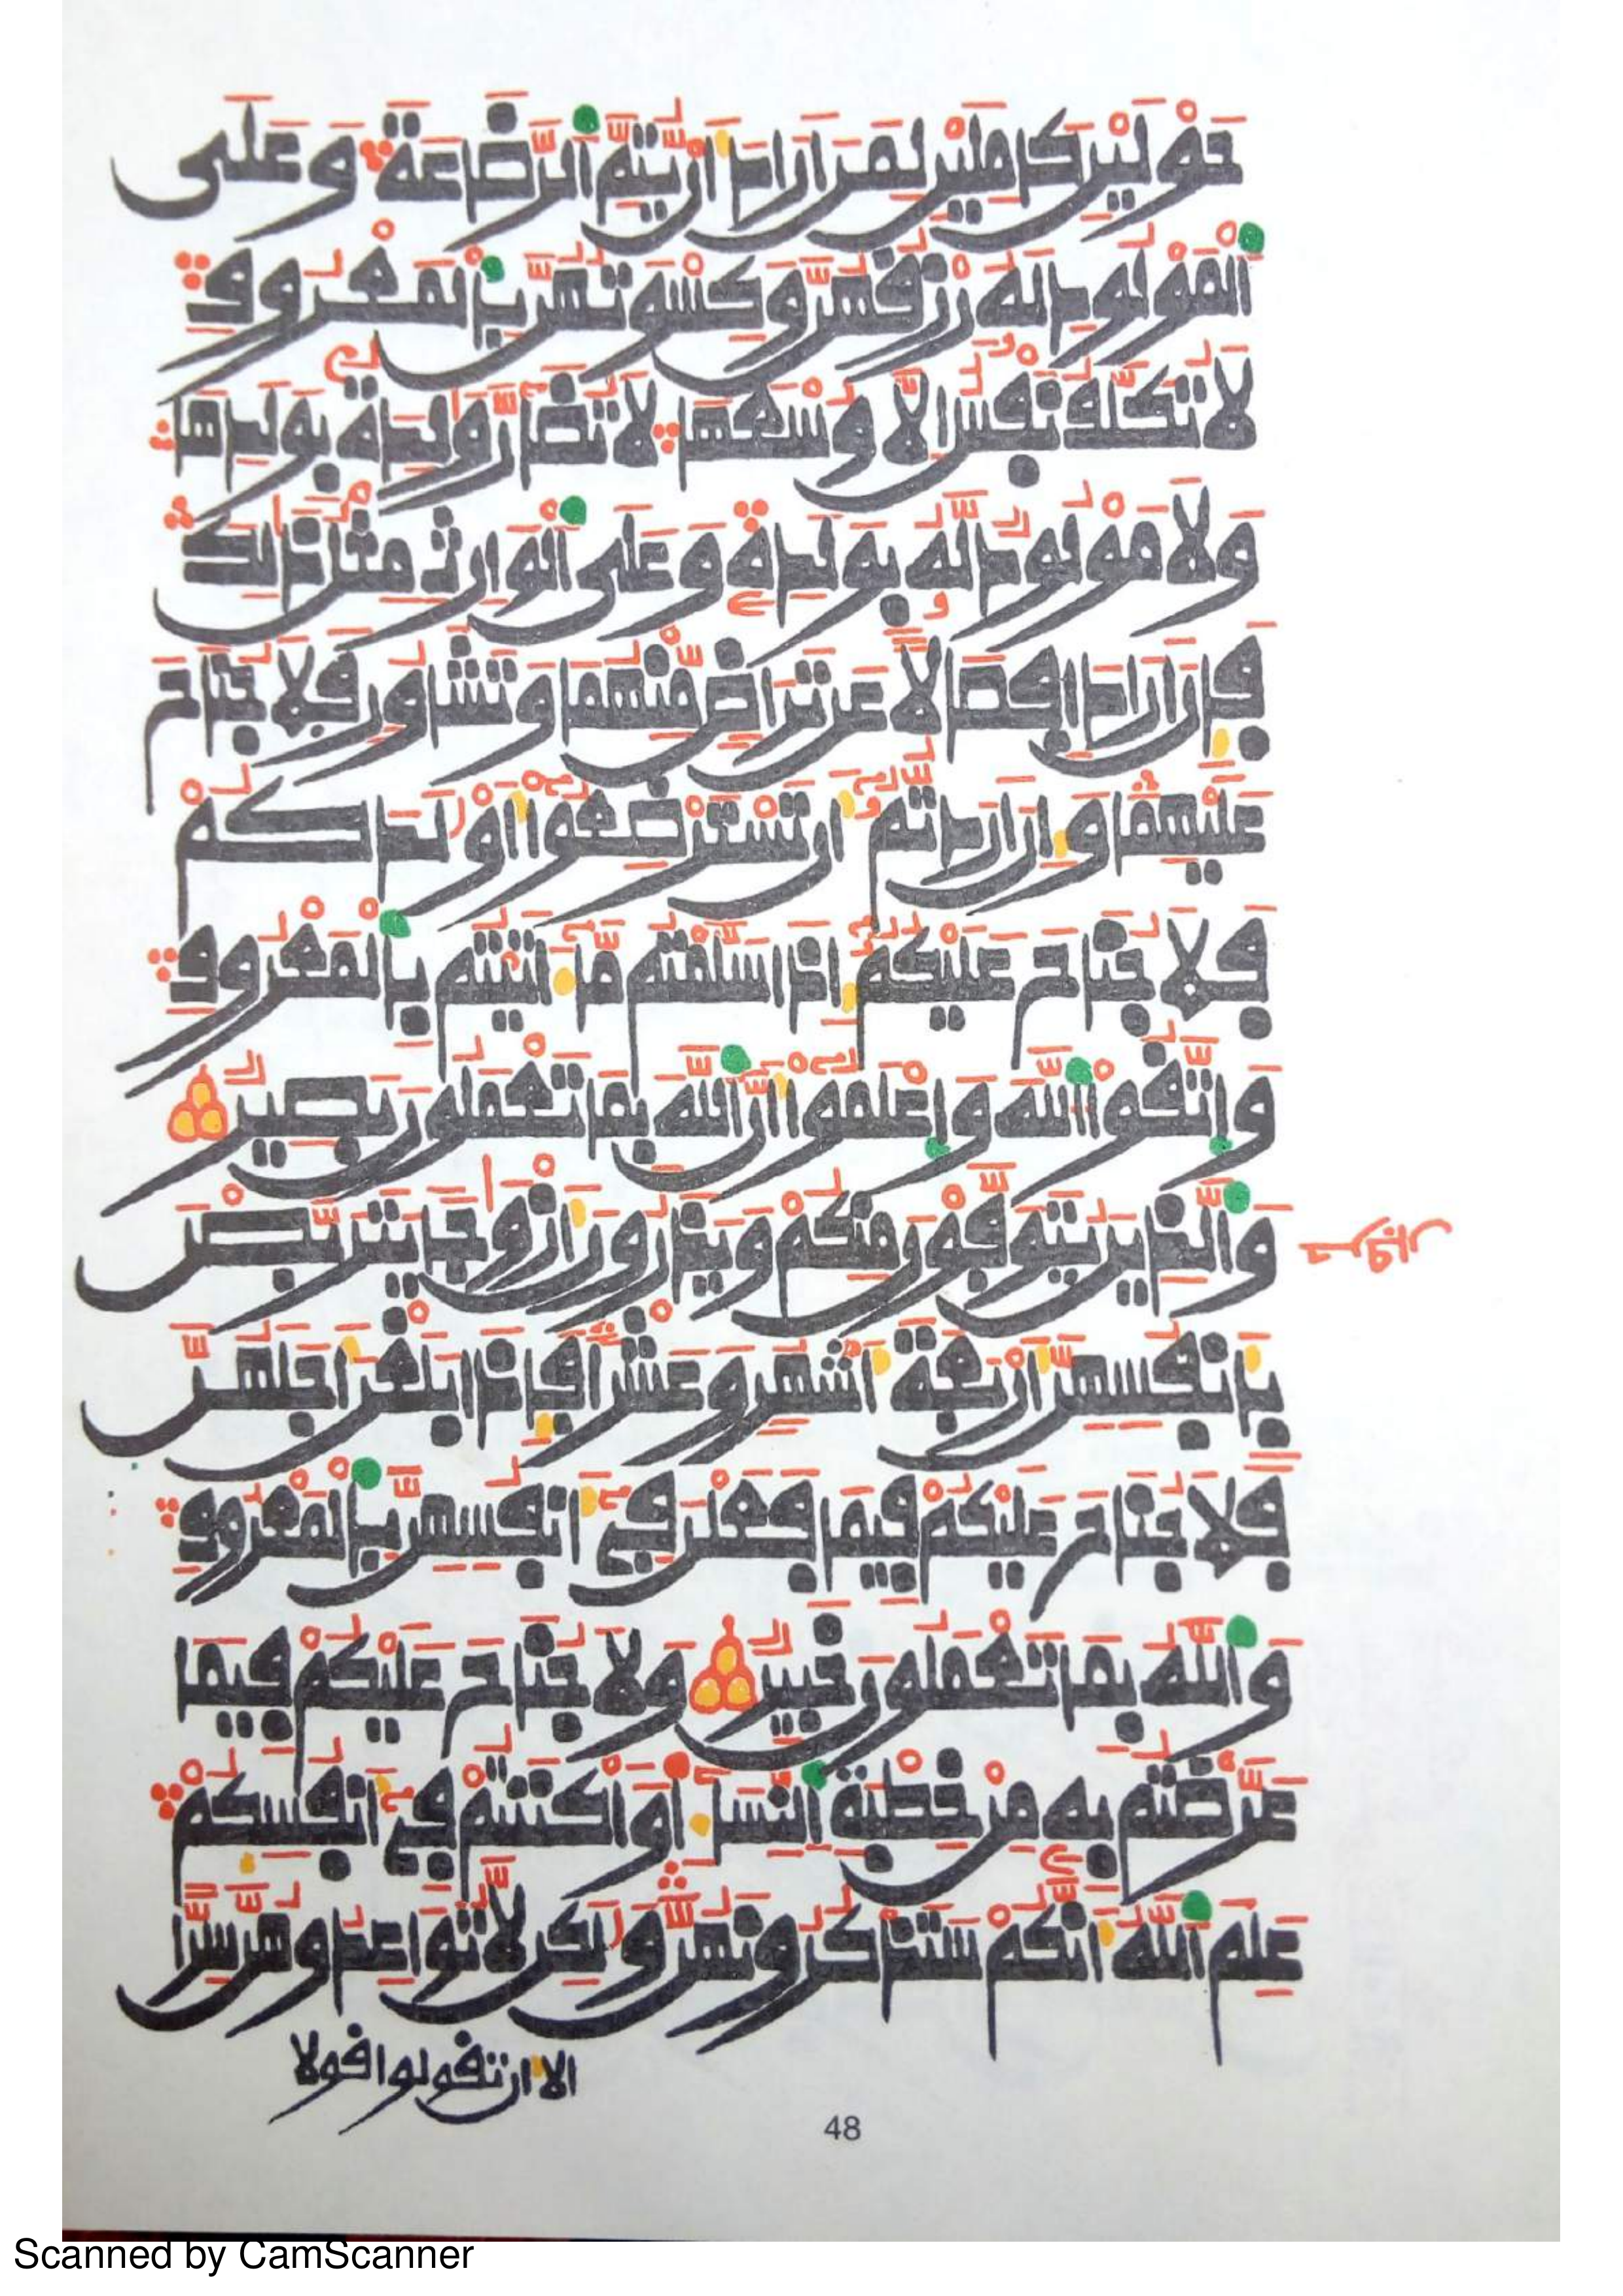 حَوْلَيْنِ كَامِلَيْنِ لِمَنَ اَرَادَ أَنْ يُّتِمَّ اَ۬لرَّضَٰعَةَ وَعَلَى
اَ۬لْمَوْلُودِ لَهُۥ رِزْقُهُنَّ وَكِسْوَتُهُنَّ بِالْمَعْرُوفِ
لَا تُكَلَّفُ نَفْسٌ اِلَّا وُسْعَهَا لَا تُضَآرَّ وَٰلِدَةُۢ بِوَلَدِهَا
وَلَا مَوْلُودٌ لَّهُۥ بِوَلَدِهِۦ وَعَلَى اَ۬لْوَارِثِ مِثْلُ ذَٰلِكَ
فَإِنَ اَرَادَا فِصَالًا عَن تَرَاضٖ مِّنْهُمَا وَتَشَاوُرٖ فَلَا جُنَاحَ
عَلَيْهِمَا وَإِنَ اَرَدتُّمُۥٓ أَن تَسْتَرْضِعُوٓاْ أَوْلَٰدَكُمْ
فَلَا جُنَاحَ عَلَيْكُمُۥٓ إِذَا سَلَّمْتُم مَّآ ءَاتَيْتُم بِالْمَعْرُوفِ
وَاتَّقُواْ اُ۬للَّهَ وَاعْلَمُوٓاْ أَنَّ اَ۬للَّهَ بِمَا تَعْمَلُونَ بَصِيرٌ
وَالذِينَ يُتَوَفَّوْنَ مِنكُمْ وَيَذَرُونَ أَزْوَٰجًا يَتَرَبَّصْنَ
بِأَنفُسِهِنَّ أَرْبَعَةَ أَشْهُرٖ وَعَشْرًا فَإِذَا بَلَغْنَ أَجَلَهُنَّ
فَلَا جُنَاحَ عَلَيْكُمْ فِيمَا فَعَلْنَ فِىٓ أَنفُسِهِنَّ بِالْمَعْرُوفِ
وَاللَّهُ بِمَا تَعْمَلُونَ خَبِيرٌ وَلَا جُنَاحَ عَلَيْكُمْ فِيمَا
عَرَّضْتُم بِهِۦ مِنْ خِطْبَةِ اِ۬لنِّسَآءِ اَ۬وَ اَكْنَنتُمْ فِىٓ أَنفُسِكُمْ
عَلِمَ اَ۬للَّهُ أَنَّكُمْ سَتَذْكُرُونَهُنَّ وَلَٰكِن لَّا تُوَاعِدُوهُنَّ سِرًّا
الا أن تقولوا قولا
48
Scanned by CamScanner